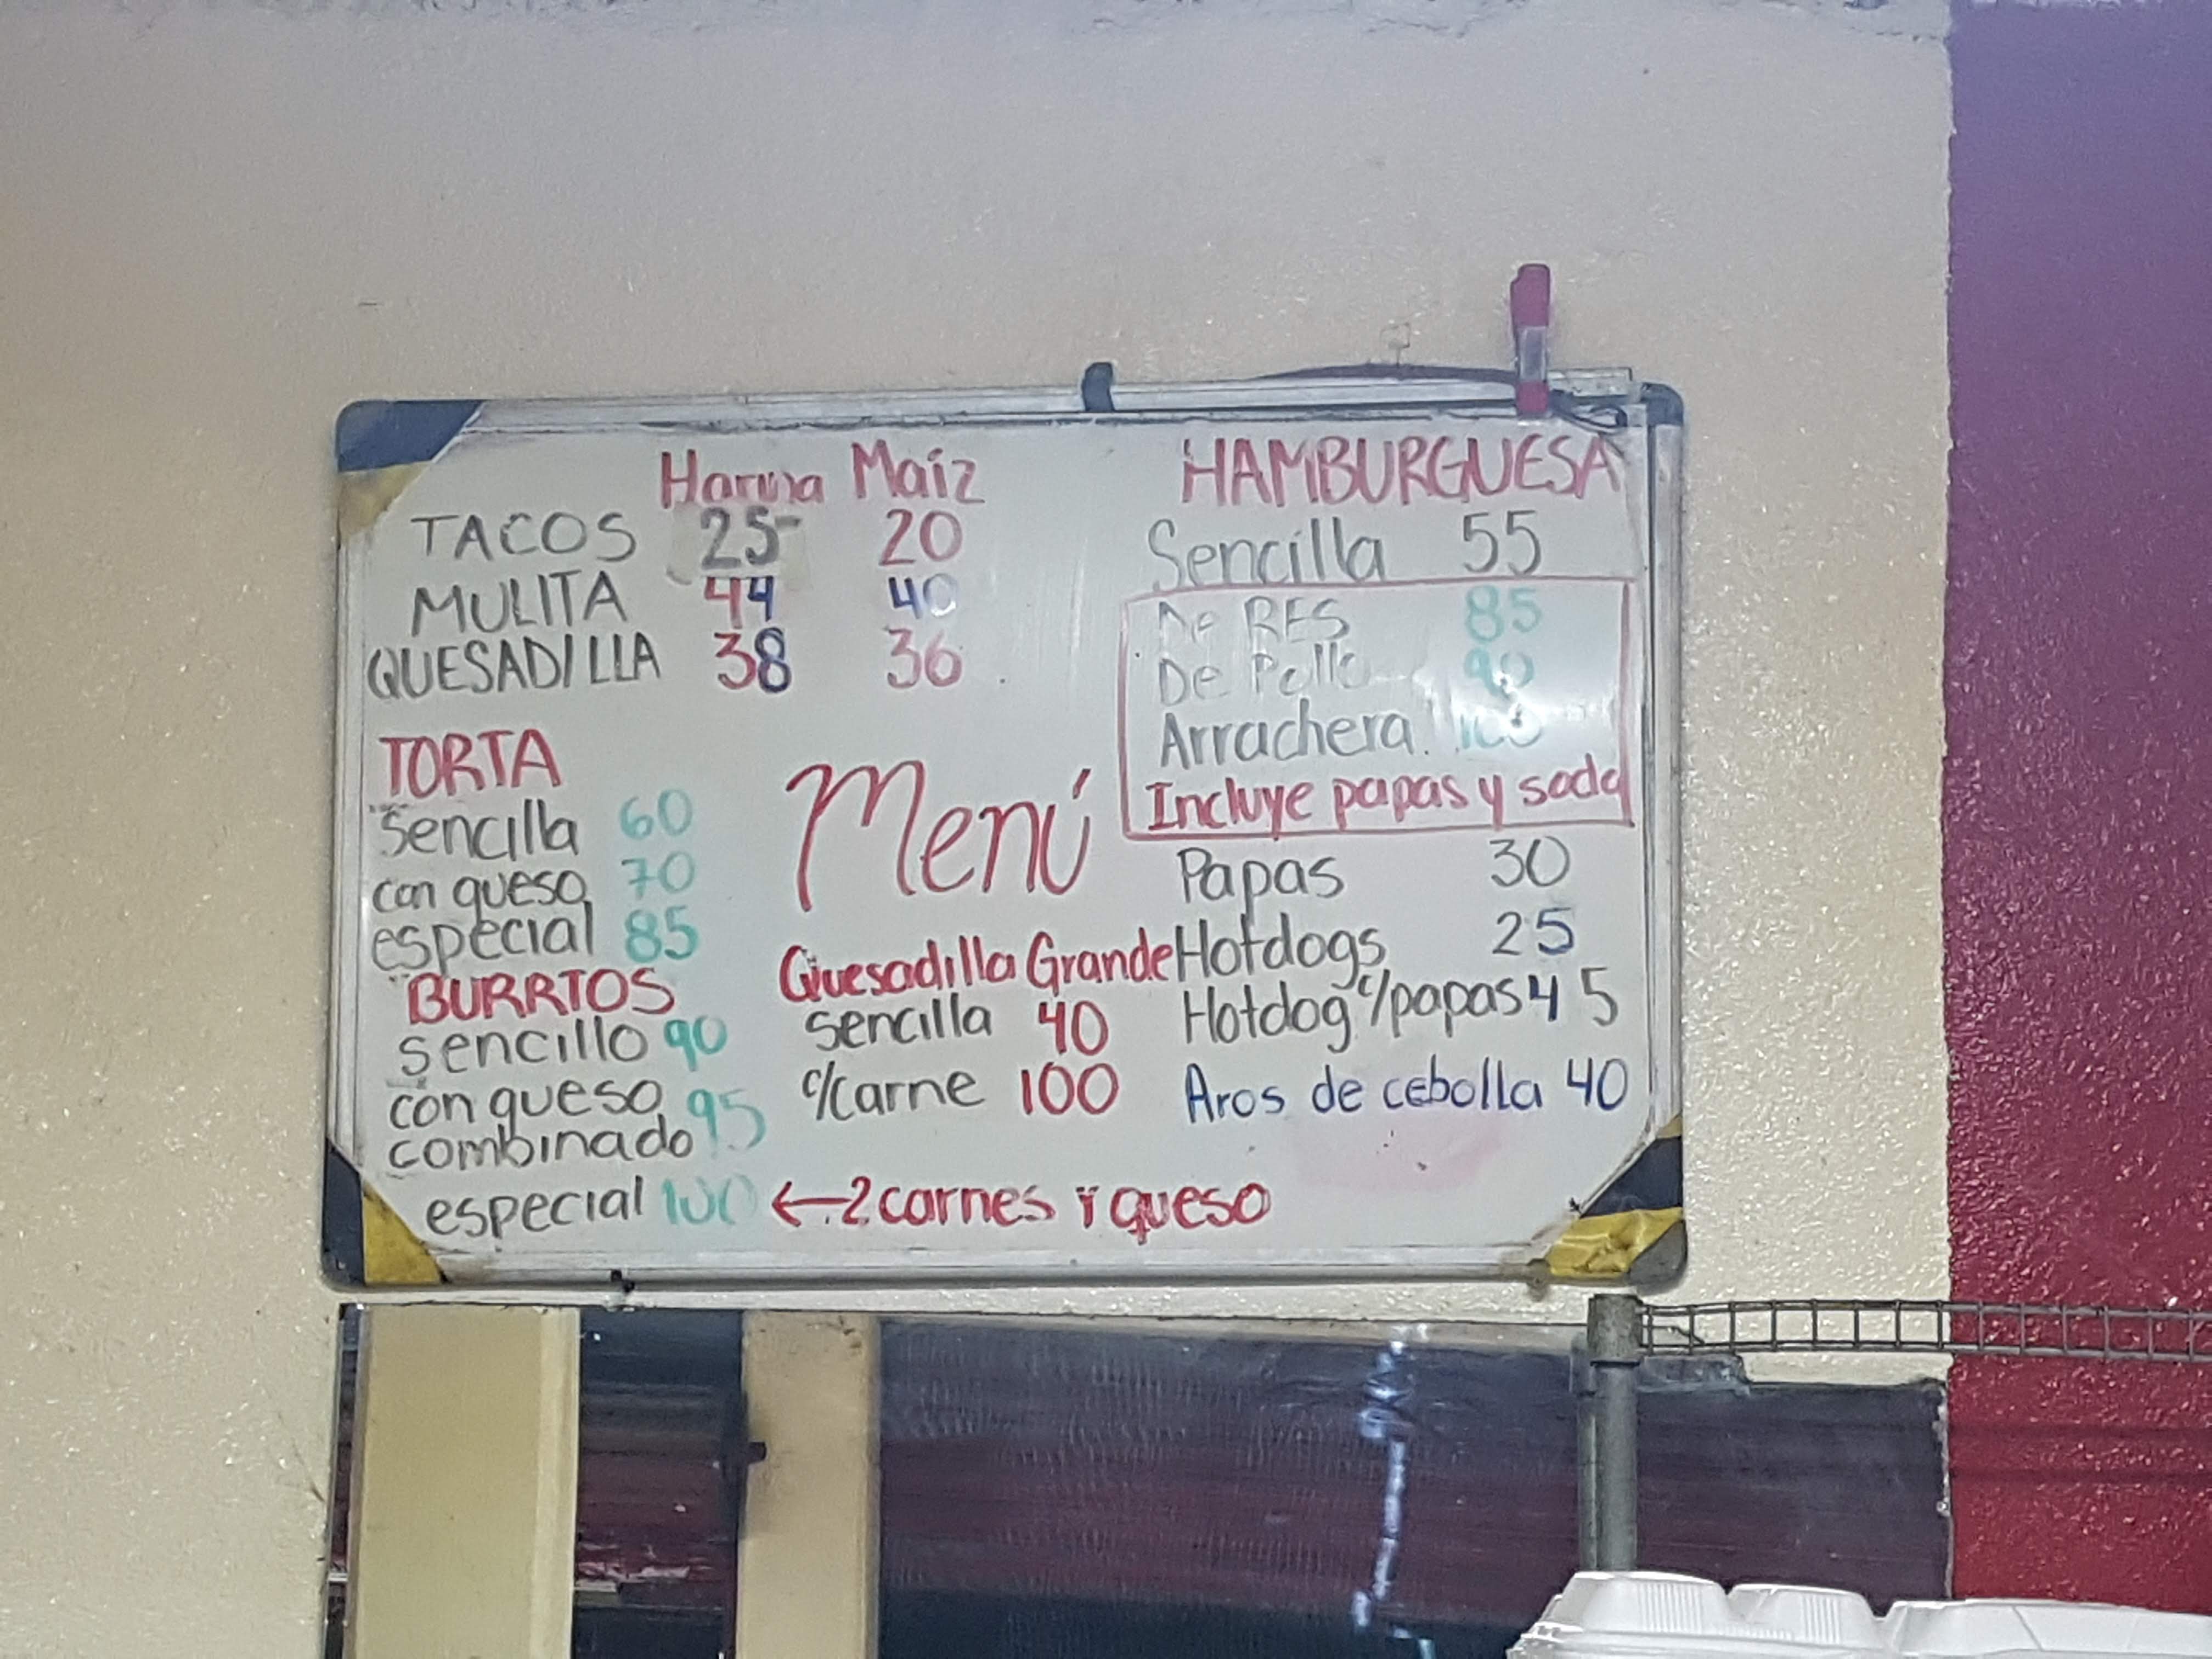 Harina Maíz
TACOS 25 20
MULITA 44 40
QUESADILLA 38 36
TORTA
Sencilla 60
con queso 70
especial 85
BURRTOS
sencillo 90
con queso 95
combinado
especial 100 ←2 carnes y queso
Menú
Quesadilla Grande
sencilla 40
c/carne 100
HAMBURGUESA
Sencilla 55
De RES 85
De Pollo 90
Arrachera 100
Incluye papas y soda
Papas 30
Hotdogs 25
Hotdog c/papas 45
Aros de cebolla 40